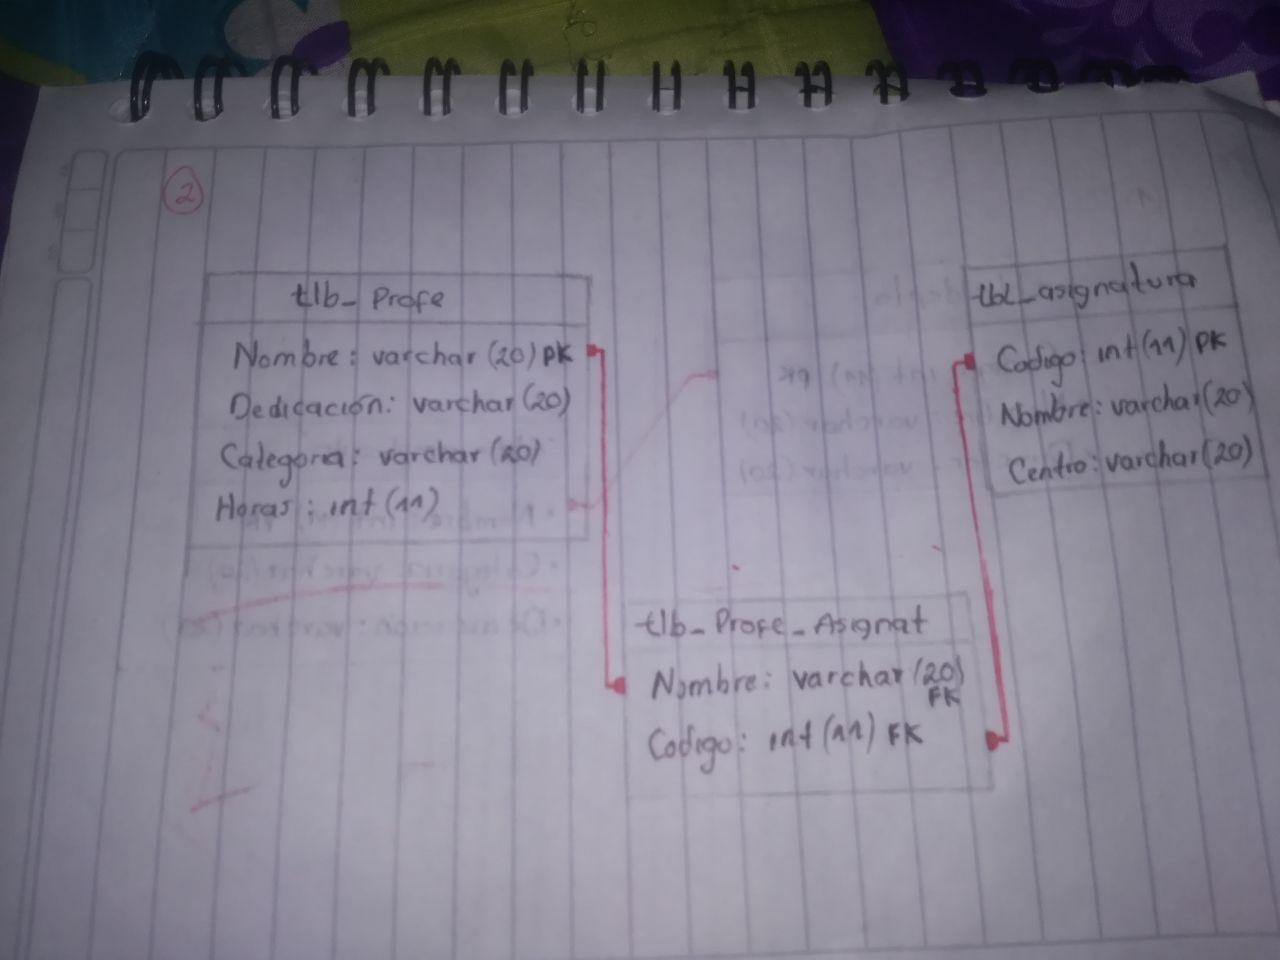 2
tlb_Profe
Nombre: varchar(20) PK
Dedicación: varchar(20)
Categoria: varchar(20)
Horas: int(11)
tbl_asignatura
Codigo: int(11) PK
Nombre: varchar(20)
Centro: varchar(20)
tlb_Profe_Asignat
Nombre: varchar(20)
FK
Codigo: int(11) FK